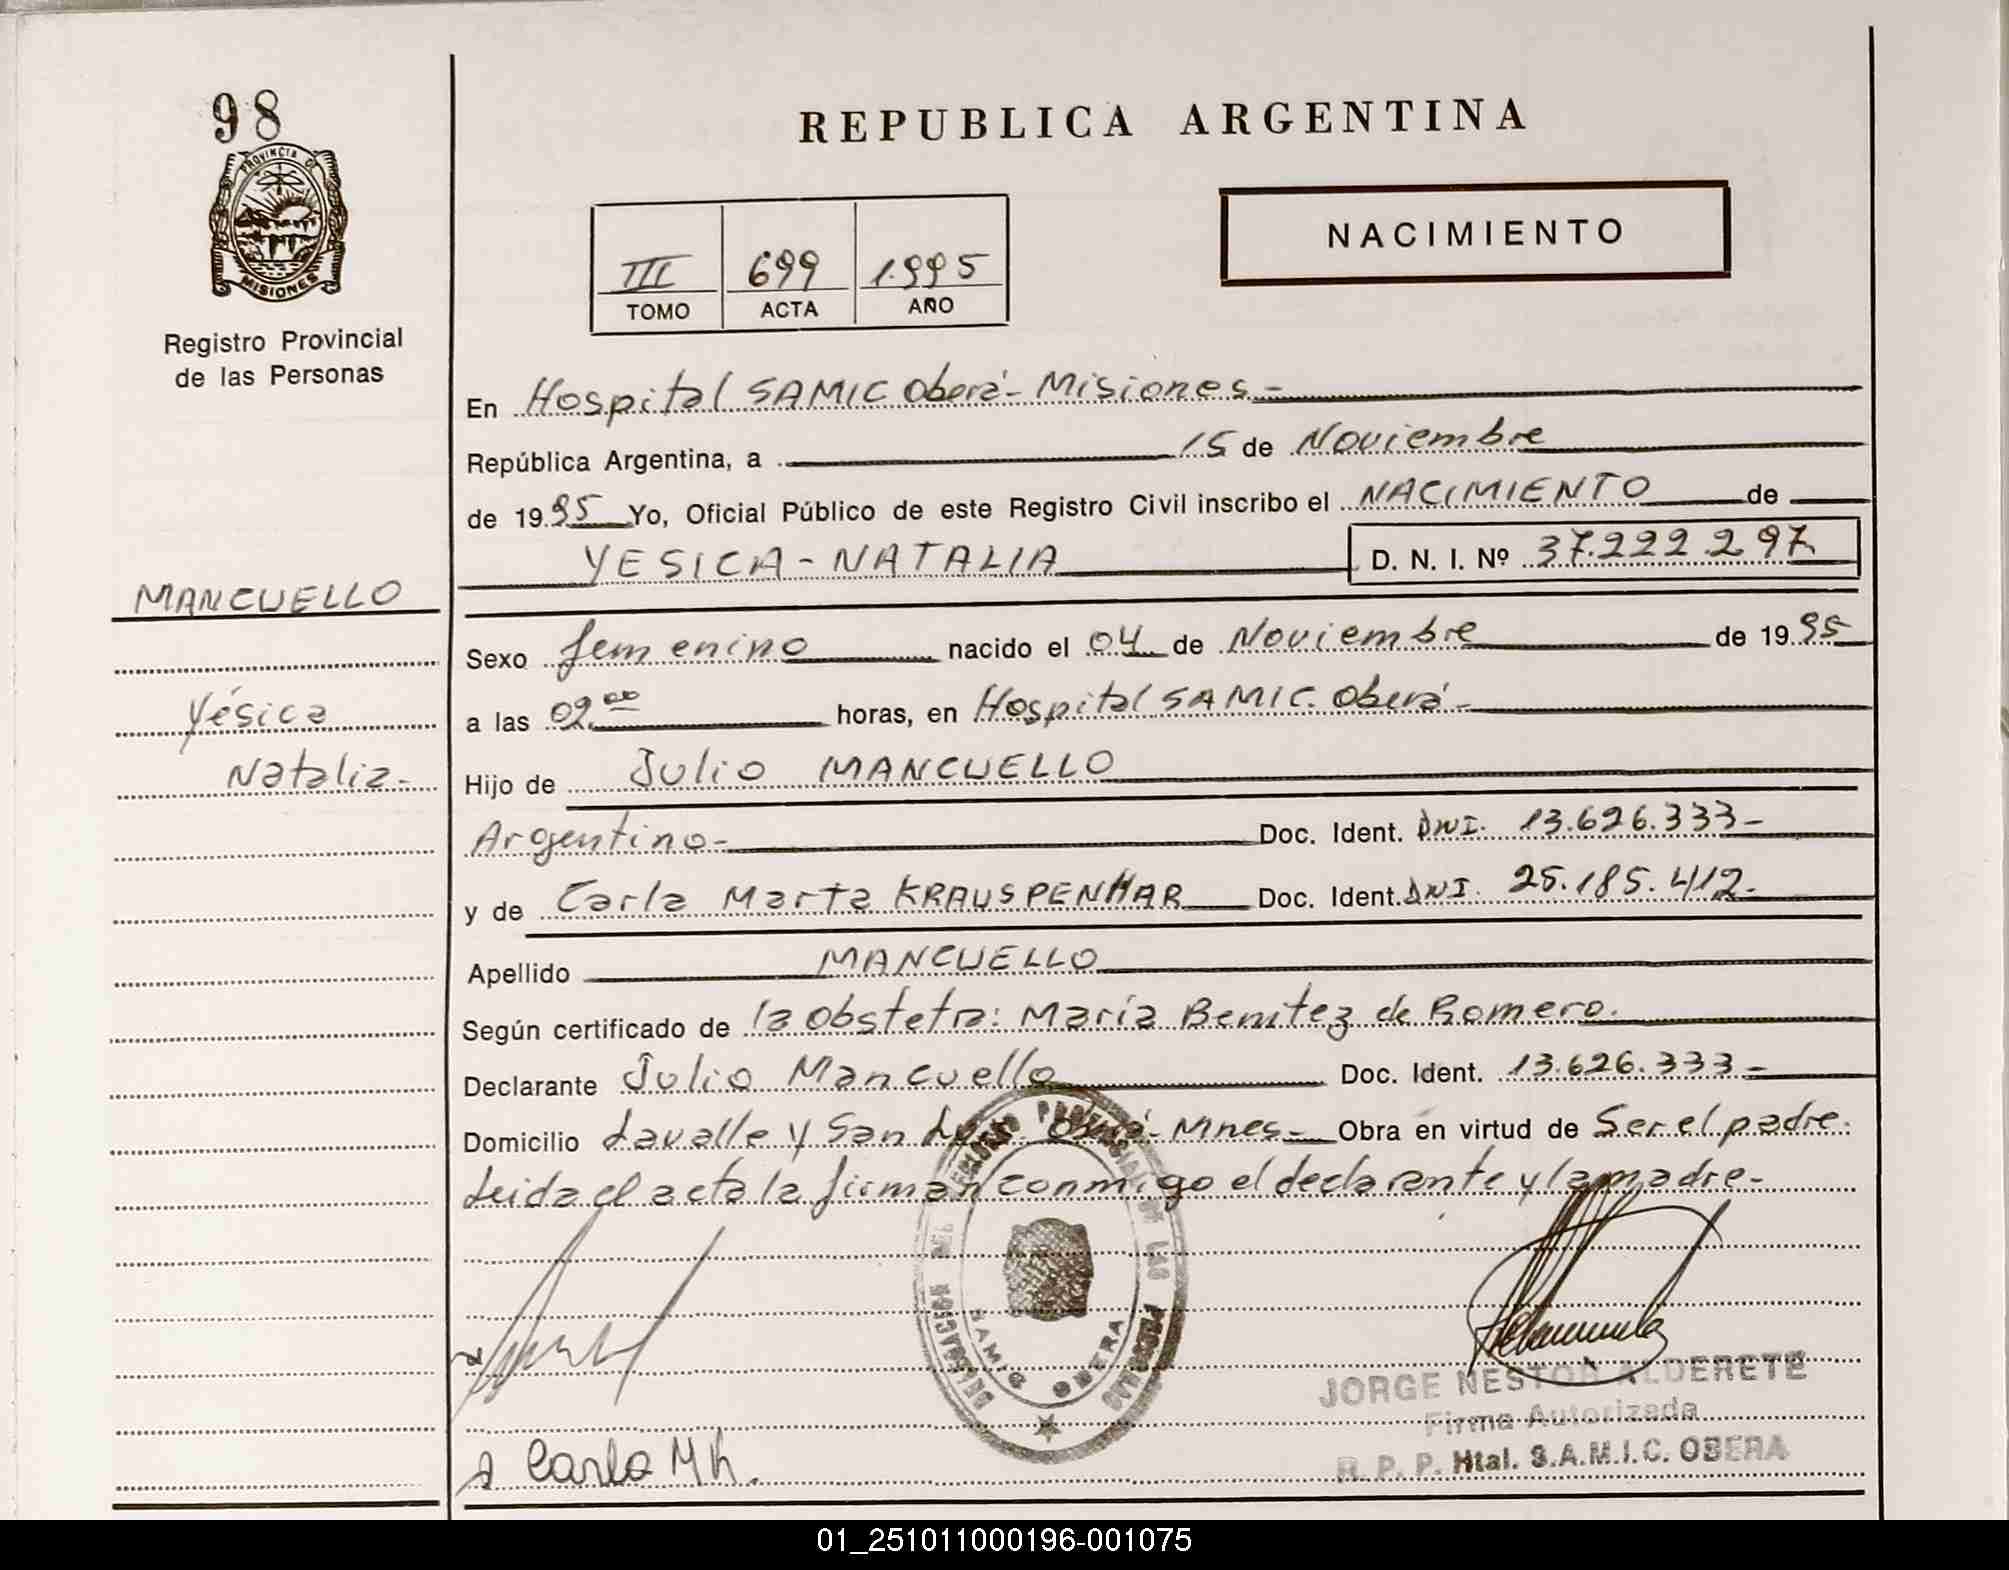 98
PROVINCIA DE
MISIONES
Registro Provincial
de las Personas
REPUBLICA ARGENTINA
NACIMIENTO
III 699 1.995
TOMO ACTA AÑO
En Hospital SAMIC Oberá - Misiones.=
República Argentina, a 15 de Noviembre
de 1995 Yo, Oficial Público de este Registro Civil inscribo el NACIMIENTO de
YESICA - NATALIA D. N. I. Nº 37.222.297
MANCUELLO
Yésica
Natalia-
Sexo femenino nacido el 04 de Noviembre de 1995
a las 02.00 horas, en Hospital SAMIC. Oberá-
Hijo de Julio MANCUELLO
Argentino- Doc. Ident. DNI. 13.626.333-
y de Carla Marta KRAUSPENHAR Doc. Ident. DNI. 25.185.412-
Apellido MANCUELLO
Según certificado de la obstetra: María Benitez de Romero.
Declarante Julio Mancuello Doc. Ident. 13.626.333-
Domicilio Lavalle y San Oberá - Mnes- Obra en virtud de Ser el padre.
Leida el acta la firman conmigo el declarante y la madre-
DELEGACION DEL REGISTRO PROVINCIAL DE LAS PERSONAS
SAMIC OBERA
JORGE NESTOR ALDERETE
Firma Autorizada
R. P. P. Htal. S.A.M.I.C. OBERA
Carla M K.
01_251011000196-001075